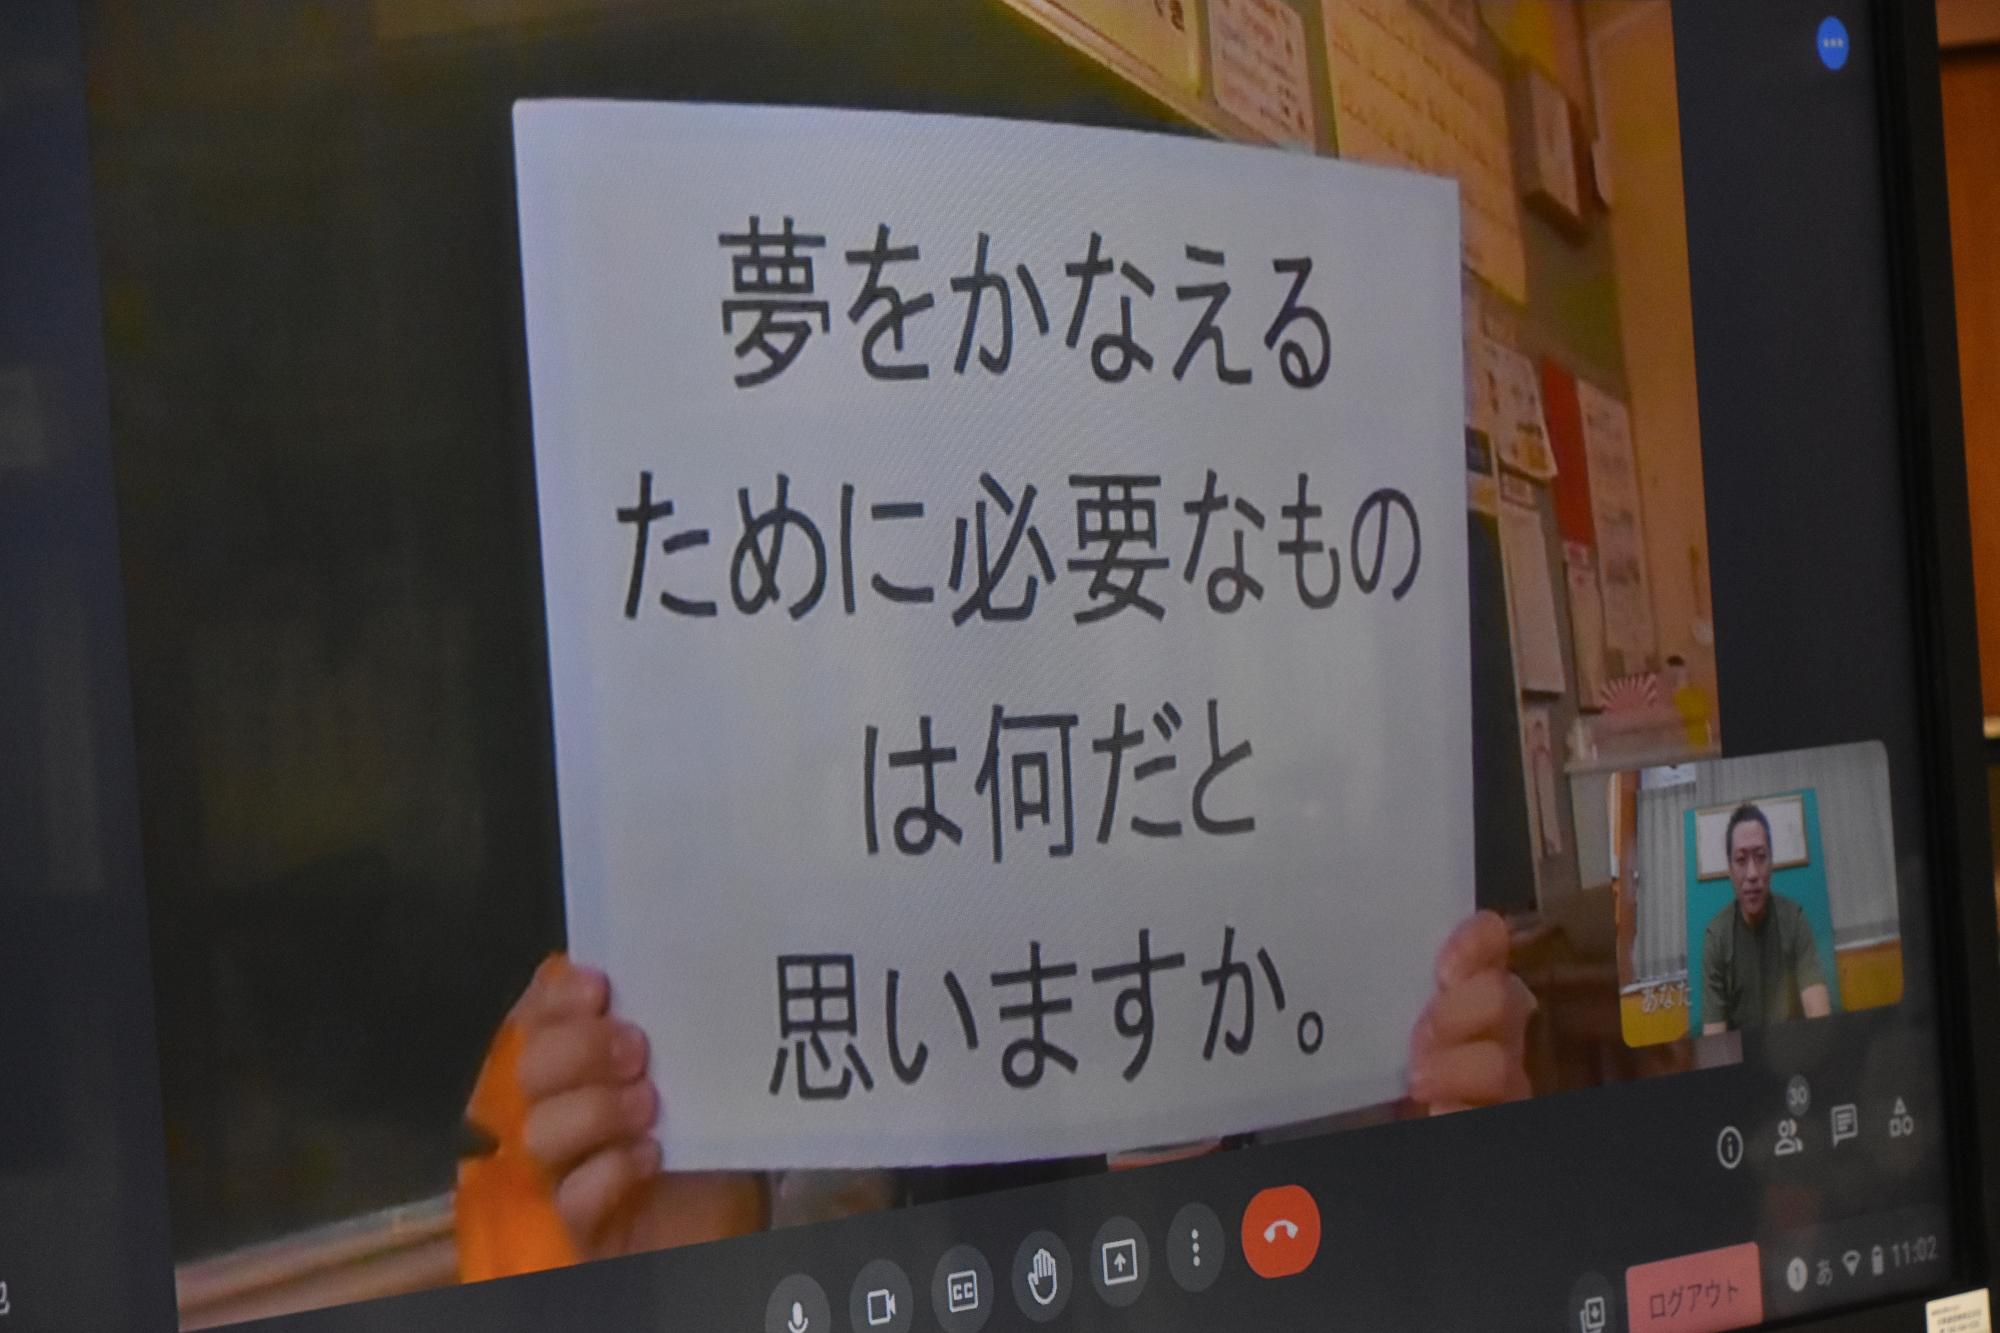 夢をかなえる
ために必要なもの
は何だと
思いますか。
あなた
30
CC
ログアウト
1 あ 11:02